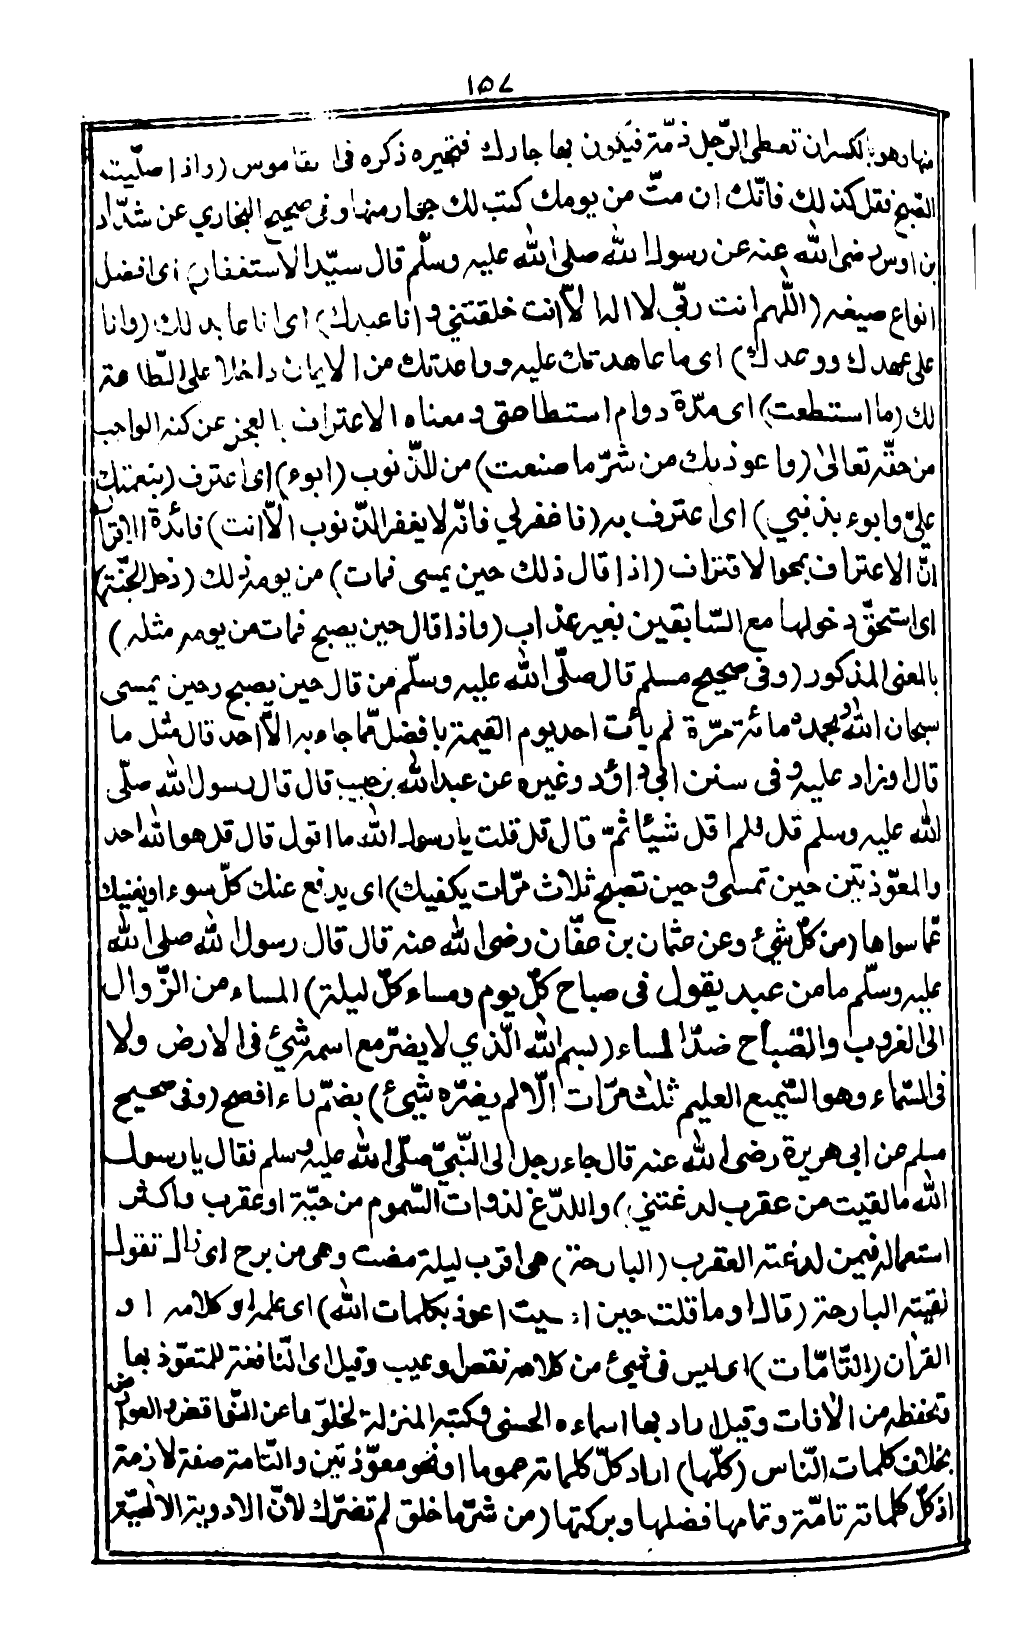 ١٥٧
منها وهو بالكسر ان تعطى الرّجل ذمّة فيكون بها جارك فتجيره ذكره فى القاموس (واذا صلّيت
الصّبح فقل كذلك فانّك ان متّ من يومك كتب لك جوار منها وفى صحيح البخاري عن شدّاد
بن اوس رضى الله عنه عن رسول الله صلى الله عليه وسلّم قال سيّد الاستغفار) اى افضل
انواع صيغه (اللّهم انت ربّي لا اله الاّ انت خلقتني وانا عبدك) اى انا عابد لك (وانا
على عهدك ووعدك) اى ما عاهدتك عليه وواعدتك من الايمان داخلا على الطّاعة
لك (ما استطعت) اى مدّة دوام استطاعتى ومعناه الاعتراف بالعجز عن كنه الواجب
من حقّه تعالىٰ (واعوذ بك من شرّ ما صنعت) من الذّنوب (ابوء) اى اعترف (بنعمتك
عليّ وابوء بذنبي) اى اعترف به (فاغفر لي فانّه لا يغفر الذّنوب الاّ انت) فائدة الاقرار
انّ الاعتراف يمحو الاقتراف (اذا قال ذلك حين يمسى فمات) من يومه ذلك (دخل الجنّة)
اى استحقّ دخولها مع السّابقين بغير عذاب (واذا قال حين يصبح فمات من يومه مثله)
بالمعنى المذكور (وفى صحيح مسلم قال صلّى الله عليه وسلّم من قال حين يصبح وحين يمسى
سبحان الله وبحمده مائة مرّة لم يأت احد يوم القيمة بافضل ممّا جاء به الاّ احد قال مثل ما
قال او زاد عليه وفى سنن ابى داؤد وغيره عن عبد الله بن خبيب قال قال رسول الله صلّى
الله عليه وسلم قل فلم اقل شيئا ثمّ قال قل قلت يا رسول الله ما اقول قال قل هو الله احد
والمعوّذتين حين تمسى وحين تصبح ثلاث مرّات يكفيك) اى يدفع عنك كلّ سوء او يغنيك
عمّا سواها (من كلّ شيئ وعن عثمان بن عفّان رضى الله عنه قال قال رسول الله صلى الله
عليه وسلّم ما من عبد يقول فى صباح كلّ يوم ومساء كلّ ليلة) المساء من الزّوال
الى الغروب والصّباح ضدّ المساء (بسم الله الّذي لا يضرّ مع اسمه شيئ فى الارض ولا
فى السّماء وهو السّميع العليم ثلٰث مرّات الّا لم يضرّه شيئ) بضمّ راء افصح (وفى صحيح
مسلم عن ابى هريرة رضى الله عنه قال جاء رجل الى النّبيّ صلّى الله عليه وسلم فقال يا رسول
الله ما لقيت من عقرب لدغتني) واللدّغ لذوات السّموم من حيّة او عقرب واكثر
استعماله فيمن لدغته العقرب (البارحة) هى اقرب ليلة مضت وهى من برح اى زال تقول
لقيته البارحة (قال او ما قلت حين امسيت اعوذ بكلمات الله) اى علمه او كلامه او
القرآن (التّامّات) اى ليس فى شيئ من كلامه نقص او عيب وقيل اى النّافعة للمتعوّذ بها
وتحفظه من الآفات وقيل اراد بها اسماءه الحسنى وكتبه المنزلة لخلوّها عن النّواقض والعوارض
بخلاف كلمات النّاس (كلّها) اراد كلّ كلماته عموما او نحو معوّذتين والتّامة صفة لازمة
اذ كلّ كلماته تامّة وتمامها فضلها وبركتها (من شرّ ما خلق لم تضرّك لانّ الادوية الالهيّة